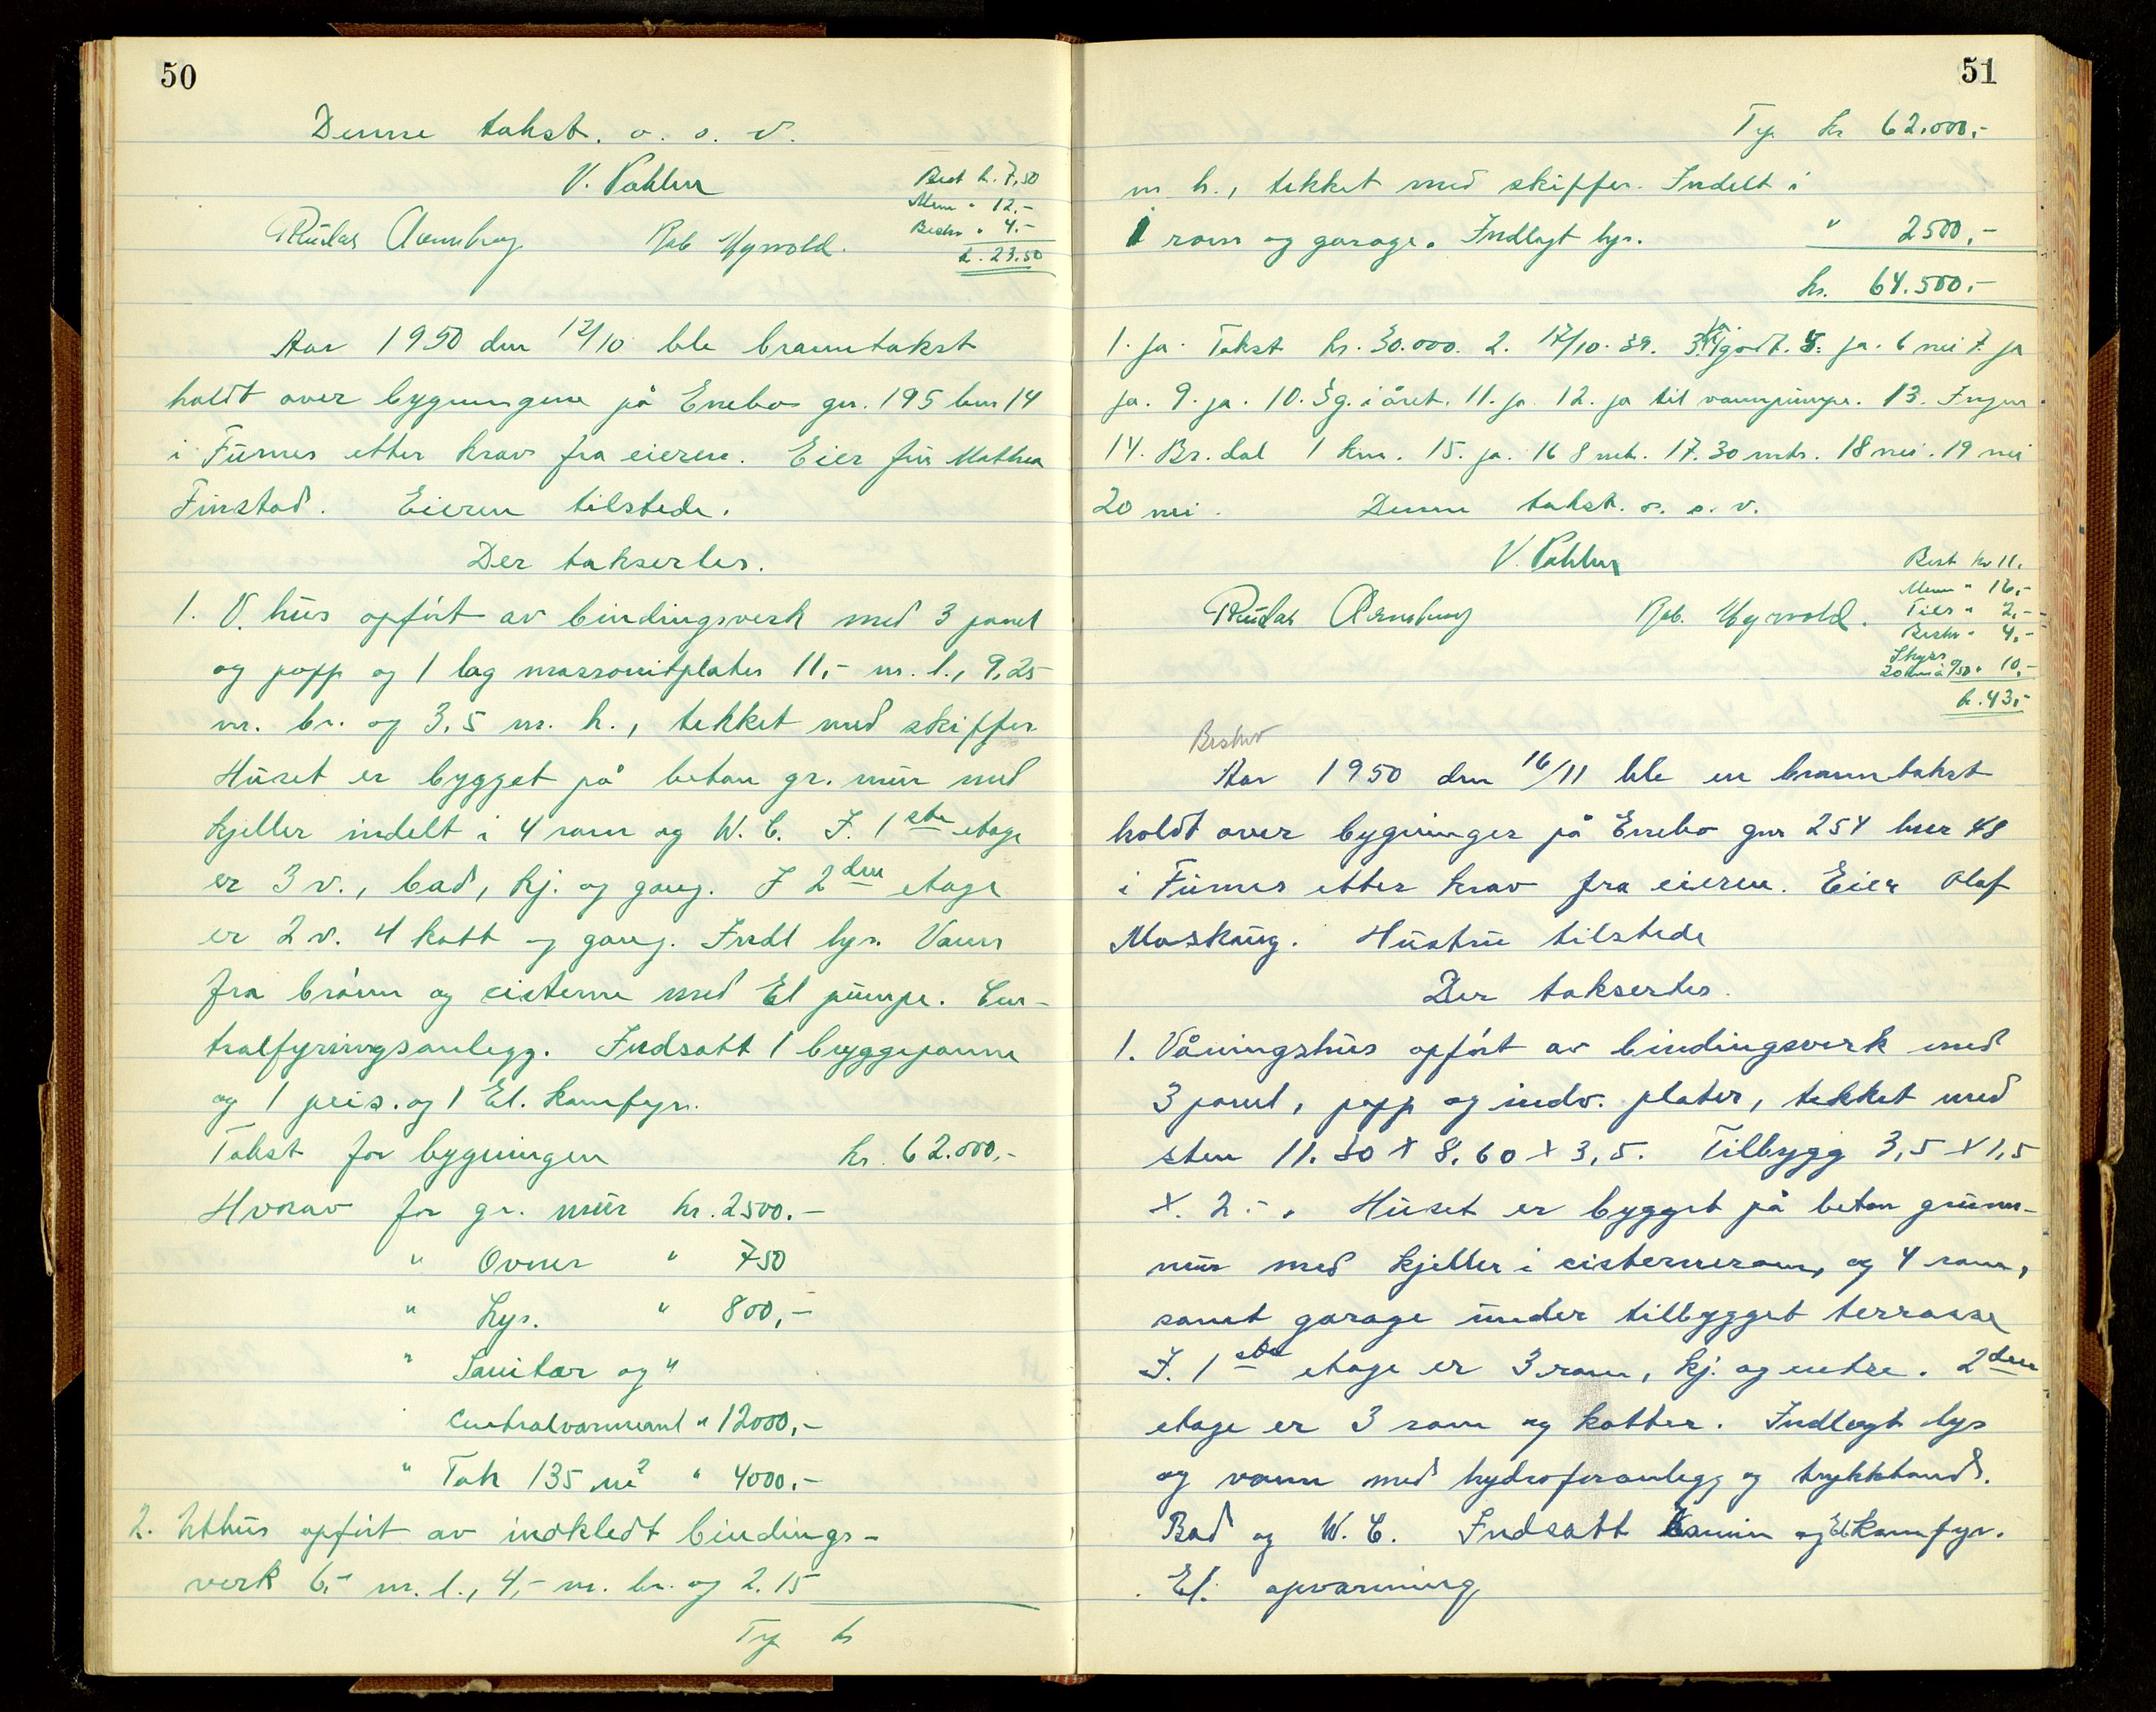 50
Denne takst. o. s. v.
V. Pahlen
Best k. 7,50
Menn " 12.-
Beskr " 4.-
k. 23.50
Aarnberg Rob Myrvold.
Aar 1950 den 12/10 ble branntakst
holdt over bygningene på Enebo gn. 195 bnr 14
i Furnes etter krav fra eieren. Eier fru Mathea
Finstad. Eieren tilstede.
Der takserles.
1. V. hus opført av bindingsverk med 3 panel
og papp og 1 lag massonitplater 11,- m. l., 9,25
m. br. og 3,5 m. h., tekket med skiffer
Huset er bygget på beton gr. mur med
kjeller indelt i 4 rom og W. C. I. 1ste etage
er 3 v., bad, kj. og gang. I 2den etage
er 2 v. 4 kott og gang. Indl lys. Vann
fra brønn og cisterne med El pumpe. Cen-
tralfyringsanlegg. Indsatt 1 bryggepanne
og 1 peis. og 1 El. komfyr.
Takst for bygningen kr. 62.000,-
Hvorav for gr. mur kr. 2500.-
" Ovner " 750
" Lys. " 800,-
" Sanitær og "
Centralvarmeanl " 12000,-
" Tak 135 m2 " 4000.-
2. Uthus opført av indkledt bindings-
verk 6,- m. l., 4,- m. br. og 2.15
Trp k
51
Trp kr 62.000,-
m h., tekket med skiffer. Indelt i
1 rom og garage. Indlagt lys. " 2500,-
kr. 64.500,-
1. ja. Takst kr. 30.000. 2. 17/10. 39. 3. ja godt. 5. ja. 6 nei 7. ja
ja. 9. ja. 10. 3 g. i året. 11. ja 12. ja til vannpumpe. 13. Ingen
14. Br. dal 1 km. 15. ja. 16 8 mtr. 17. 30 mtr. 18 nei. 19 nei
20 nei. Denne takst. o. s. v.
V. Pahlen
Best kr 11.
Menn " 16,-
" 2,-
Beskr " 4,-
Aarnberg Rob. Myrvold.
Skyss
20 km à 0/50 " 10,-
k. 43,-
Beskr
Aar 1950 den 16/11 ble en branntakst
holdt over bygninger på Enebo gnr 254 bnr 48
i Furnes etter krav fra eieren. Eier Olaf
Moskaug. Hustru tilstede
Der taksertes.
1. Våningshus opført av bindingsverk med
3 panel, papp og indv. plater, tekket med
sten 11.30 x 8,60 x 3,5. Tilbygg 3,5 x 1,5
x. 2.-. Huset er bygget på beton grunn-
mur med kjeller i cisternerom, og 4 rom,
samt garage under tilbygget terrasse
I. 1ste etage er 3 rom, kj. og entre. 2den
etage er 3 rom og kotter. Indlagt lys
og vann med hydroforanlegg og trykktank.
Bad og W. C. Indsatt kamin og El komfyr.
El. opvarming